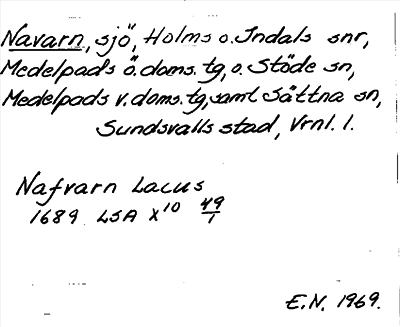 Navarn, sjö, Holms o. Indals snr,
Medelpads ö. doms. tg, o. Stöde sn,
Medelpads v. doms. tg, samt Sättna sn,
Sundsvalls stad, Vrnl. l.
Nafvarn Lacus
1689 LSA X¹⁰ 49/1
E.N. 1969.